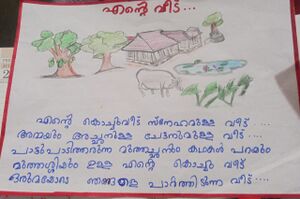 എന്റെ വീട് ...
എന്റെ കൊച്ചുവീട് സ്നേഹമുള്ള വീട് ....
അമ്മയും അച്ഛനുമുള്ള ചേട്ടനുമുള്ള വീട് ....
പാട്ടുപാടിത്തരുന്ന മുത്തച്ഛനും കഥകൾ പറയും
മുത്തശ്ശിയും ഉള്ള എന്റെ കൊച്ചു വീട്
ഒരുമയോടെ ഞങ്ങളെ പാർത്തിടുന്ന വീട് ....